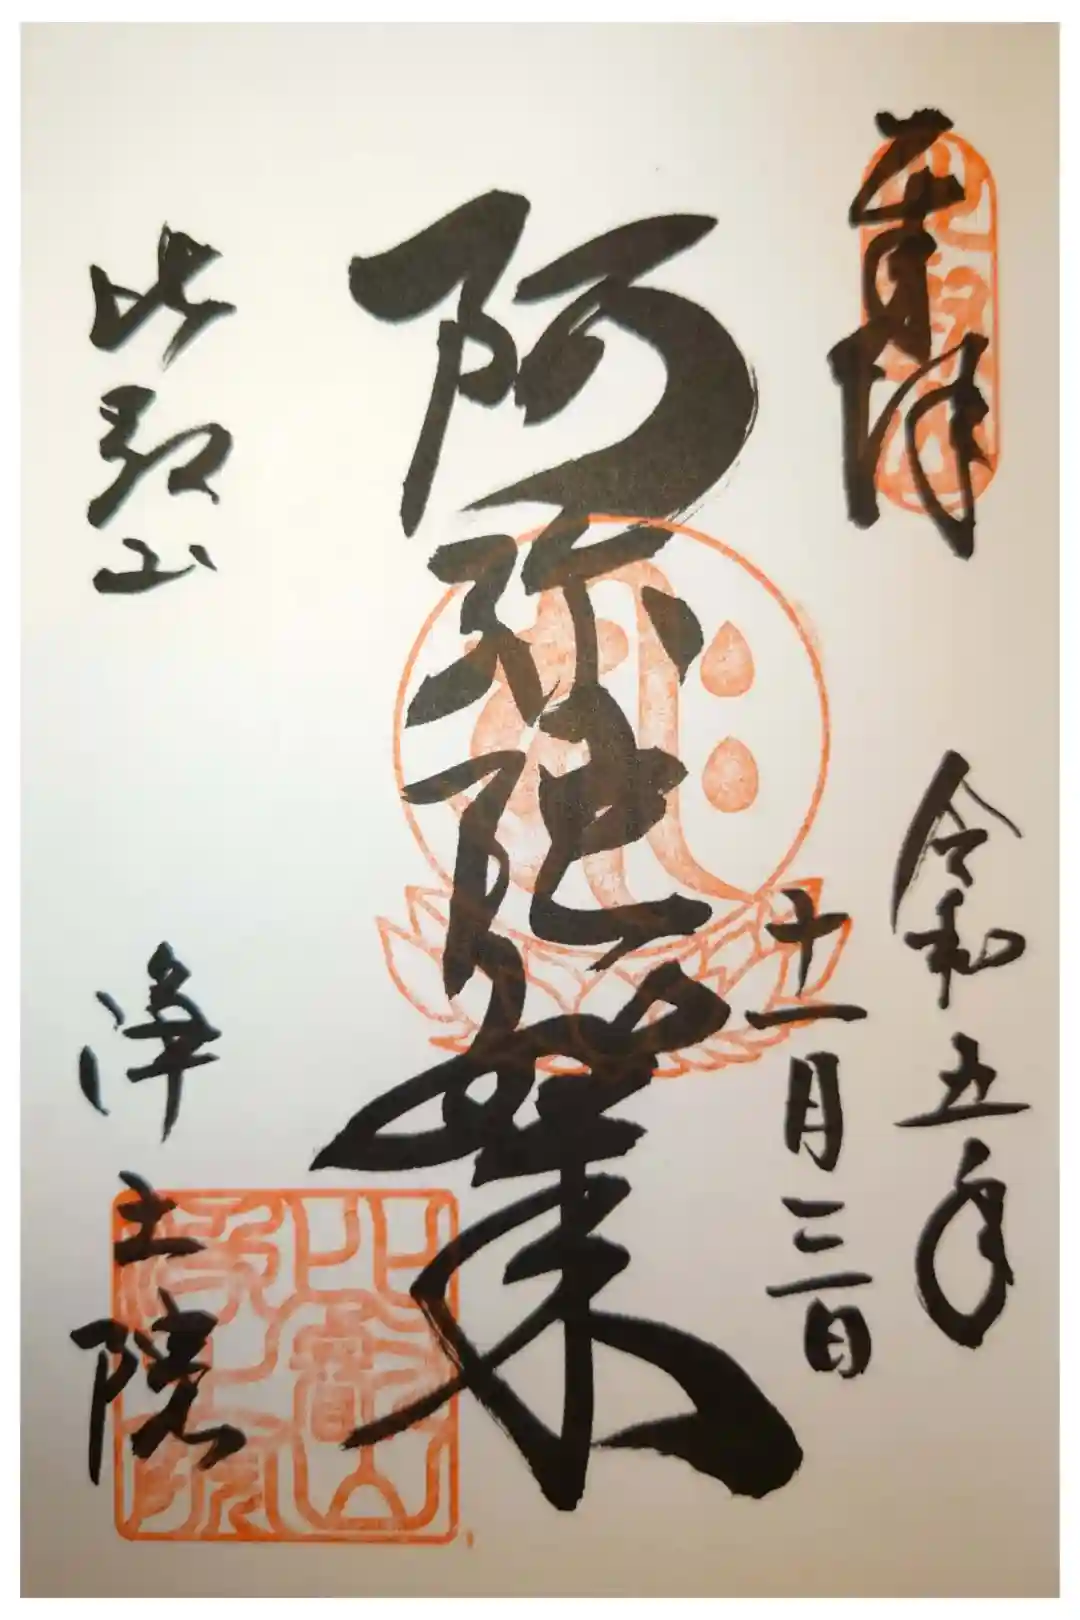 奉拝
令和五年
十一月三日
阿弥陀如来
比叡山
浄土院
比叡山
浄土院